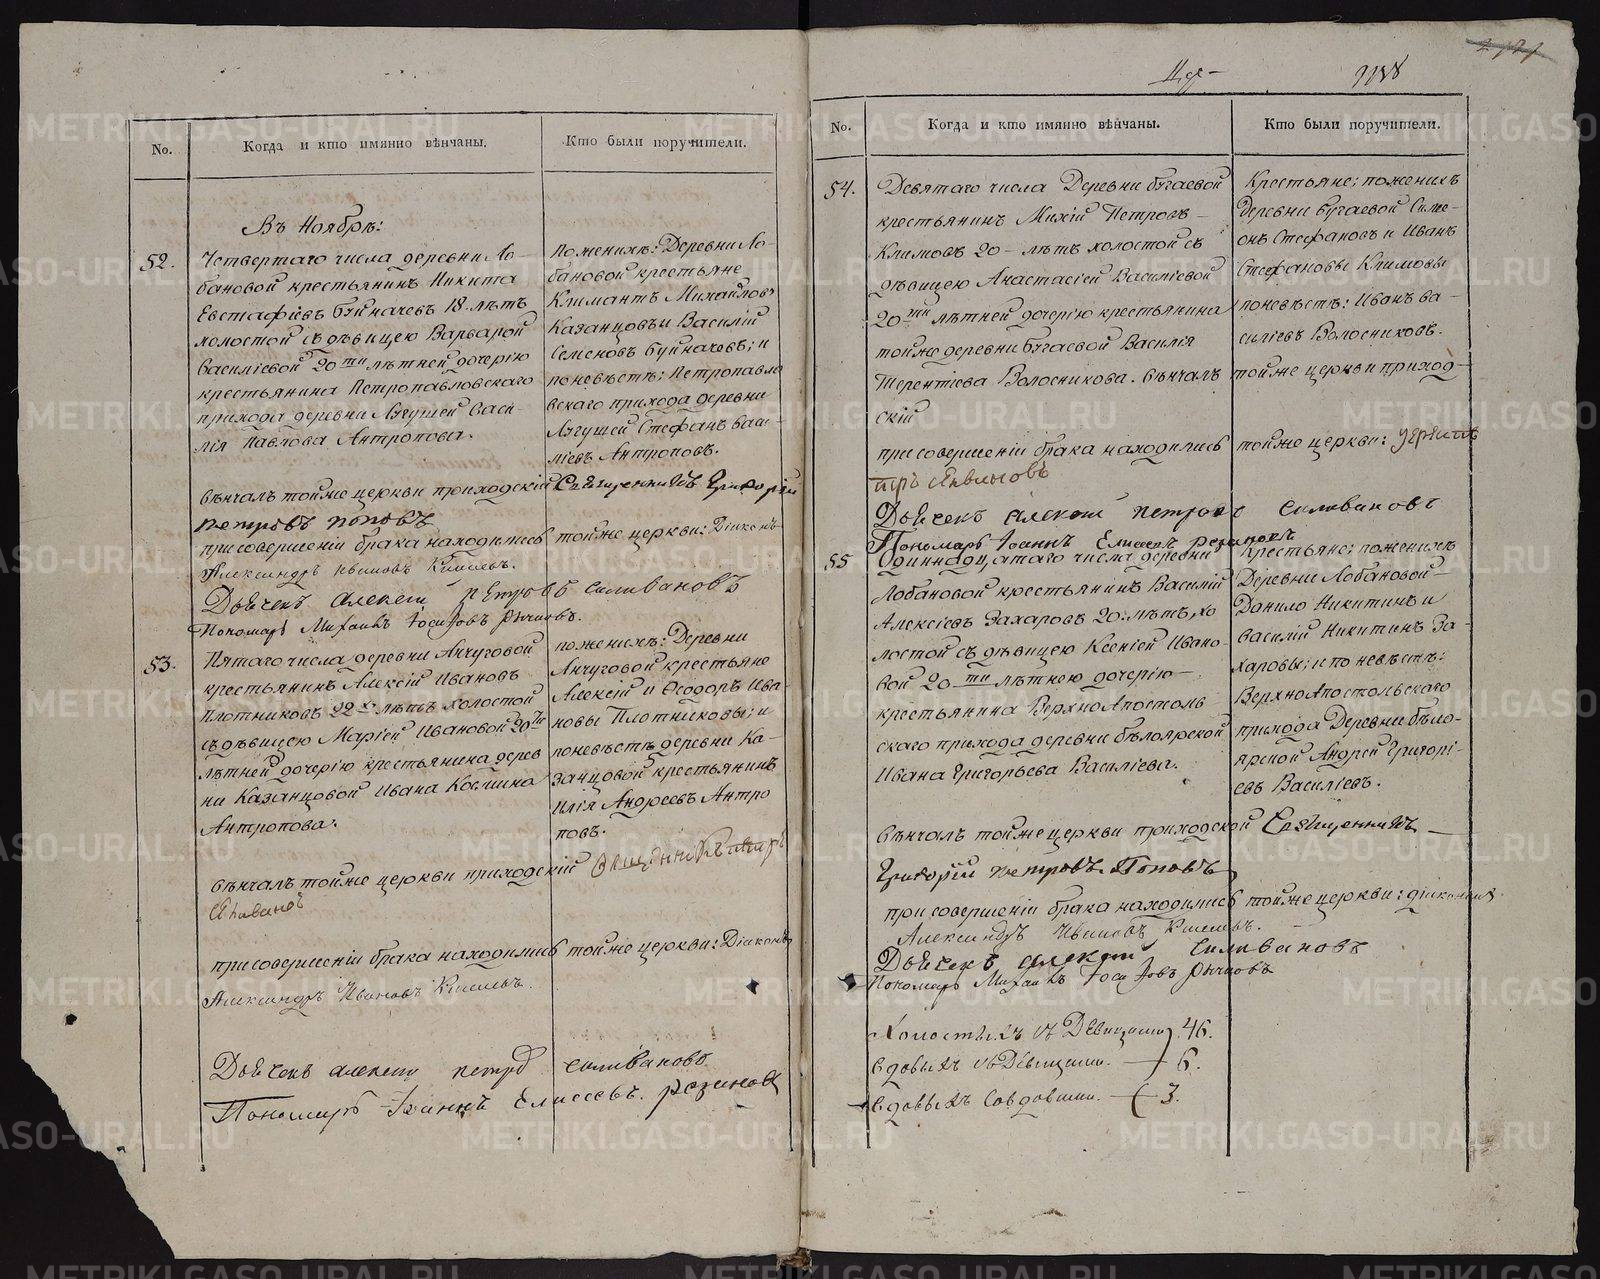 No.
Когда и кто имянно вѣнчаны.
Кто были поручители.
Въ Ноябрѣ:
52.
Четвертаго числа деревни Ло-
бановой крестьянинъ Никита
Евстафіевъ Буйначевъ 18. лѣтъ
холостой съ дѣвицею Варварой
Василіевой 20ти лѣтней дочерію
крестьянина Петропавловскаго
прихода деревни Лягушей Васи-
лія Павлова Антропова.
пожених: Деревни Ло-
бановой крестьяне
Климантъ Михайловъ
Казанцовъ и Василій
Семеновъ Буйначевъ; и
поневѣстѣ: Петропавло
вскаго прихода деревни
Лягушей Стефанъ Васи-
ліевъ Антроповъ.
вѣнчалъ тойже церкви приходскій Священникъ Григорій
Петровъ Поповъ
присовершеніи брака находились тойже церкви: Діаконъ
Александръ Ивановъ Киселевъ.
Дьячекъ Алексей Петровъ Селивановъ
Пономарь Михаилъ Іосифовъ
53.
Пятаго числа деревни Анчуговой
крестьянинъ Алексій Ивановъ
Плотниковъ 22х лѣтъ холостой
съ дѣвицею Маріей Ивановой 20ти
лѣтней дочерію крестьянина дерев
ни Казанцовой Ивана Космина
Антропова.
поженихѣ: Деревни
Анчуговой крестьяне
Алексій и Ѳеодоръ Ива-
новы Плотниковы; и
поневѣстѣ деревни Ка-
занцовой крестьянинъ
Илія Андреевъ Антро
повъ.
вѣнчалъ тойже церкви приходскій Священникъ
присовершеніи брака находились тойже церкви: Діаконъ
Александръ Ивановъ Киселевъ.
Дьячекъ Алексей Петровъ Селивановъ
Пономарь Іоаннъ Елисеевъ Резановъ
No.
Когда и кто имянно вѣнчаны.
Кто были поручители.
54.
Девятаго числа Деревни бугаевой
крестьянинъ Михій Петровъ
Климовъ 20 - лѣтъ холостой съ
дѣвицею Анастасіей Василіевой
20ти лѣтней дочерію крестьянина
тойже деревни бугаевой Василія
Терентіева Волосникова. вѣнчалъ тойже церкви приход-
скій
Крестьяне; поженихѣ
деревни бугаевой Симе-
онъ Стефановъ и Иванъ
Стефановы Климовы
поневѣстѣ: Иванъ ва-
силіевъ Волосниковъ.
присовершеніи брака находились тойже церкви:
Дьячекъ Алексей Петровъ Селивановъ
Пономарь Іоаннъ Елисеевъ Резановъ
55
Одиннадцатаго числа деревни
Лобановой крестьянинъ Василій
Алексіевъ Захаровъ 20. лѣтъ, хо
лостой съ дѣвицею Ксеніей Ивано-
вой 20ти лѣтнею дочерію
крестьянина ВерхноАпостоль
скаго прихода деревни бѣлоярской
Ивана Григорьева Василіева.
Крестьяне: поженихѣ
Деревни Лобановой
Данило Никитинъ и
Василій Никитинъ За-
харовы; и поневѣстѣ:
ВерхноАпостольскаго
прихода Деревни бѣло-
ярской Андрей Григорі-
евъ Василіевъ.
вѣнчалъ тойже церкви приходской Священникъ
Григорій Петровъ Поповъ
присовершеніи брака находились тойже церкви: діаконъ
Александръ Ивановъ Киселевъ.
Дьячекъ Алексей Селивановъ
Пономарь Михаилъ Іосифовъ
Холостыхъ съ Девицами 46.
вдовыхъ съ Девицами. 6.
вдовыхъ совдовами. 3.
METRIKI.GASO-URAL.RU